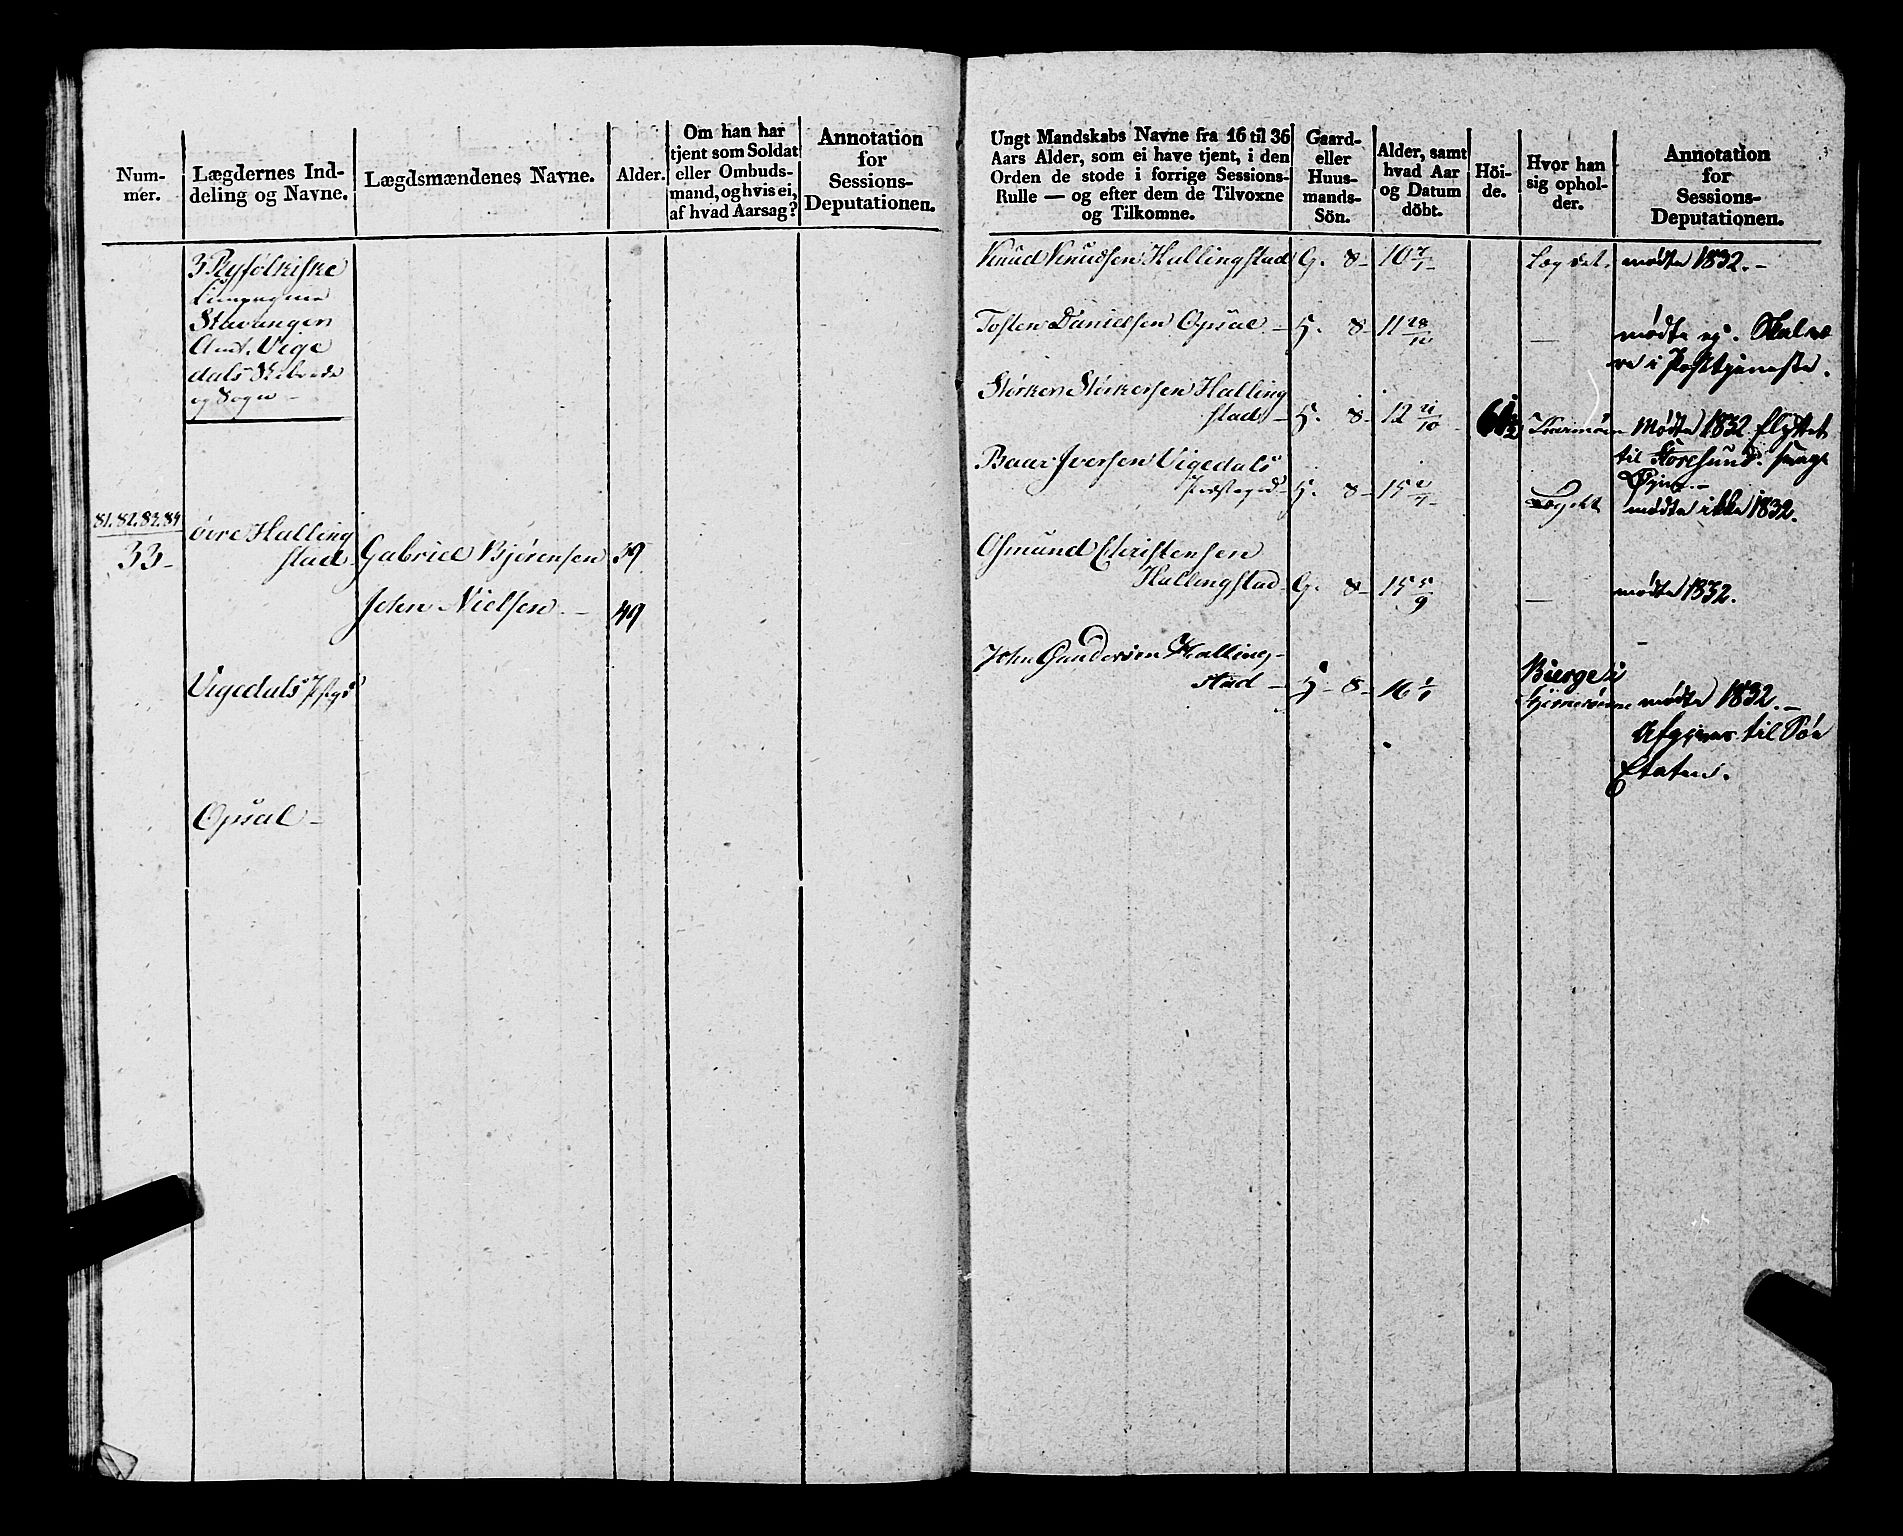 Num-
mer.
Lægdernes Ind-
deling og Navne.
Lægdsmændenes Navne.
Alder.
Om han har
tjent som Soldat
eller Ombuds-
mand, og hvis ei,
af hvad Aarsag?
Annotation
for
Sessions-
Deputationen.
3 Ryfölkiske
Compagnie
Stavanger
Amt. Vige
dals Skibrede
og Sogn
81. 82. 83. 84
33 -
övre Halling
stad
Gabriel Björensen 39
John Nielsen - 49
Vigedals Pstgd
Opsal -
Ungt Mandskabs Navne fra 16 til 36
Aars Alder, som ei have tjent, i den
Orden de stode i forrige Sessions-
Rulle — og efter dem de Tilvoxne
og Tilkomne.
Gaard-
eller
Huus-
mands-
Sön.
Alder, samt
hvad Aar
og Datum
döbt.
Höi-
de.
Hvor han
sig ophol-
der.
Annotation
for
Sessions-
Deputationen.
Knud Knudsen Hallingstad G. 8 - 10 7/1 Lægdet. mödte 1832. -
Tosten Danielsen Opsal - H. 8 - 11 28/12 -
mödte ej. Skal væ
re i Posttjeneste.
Störker Störkersen Halling
stad - H. 8 - 12 21/10 61 1/2 Karmöen Mödte 1832 flyttet
til Storesund. svage
Öjne. -
Baar Iversen Vigedals
Præstegd - H. 8 - 15 2/7 Lægdet mödte ikke 1832.
Osmund Christensen
Hallingstad G. 8 - 15 5/9 - mödte 1832.
John Gundersen Halling-
stad - H - 8 - 16 1/1
Bierge i
Hjernerøene mödte 1832. -
Afgives til Söe
Etaten.